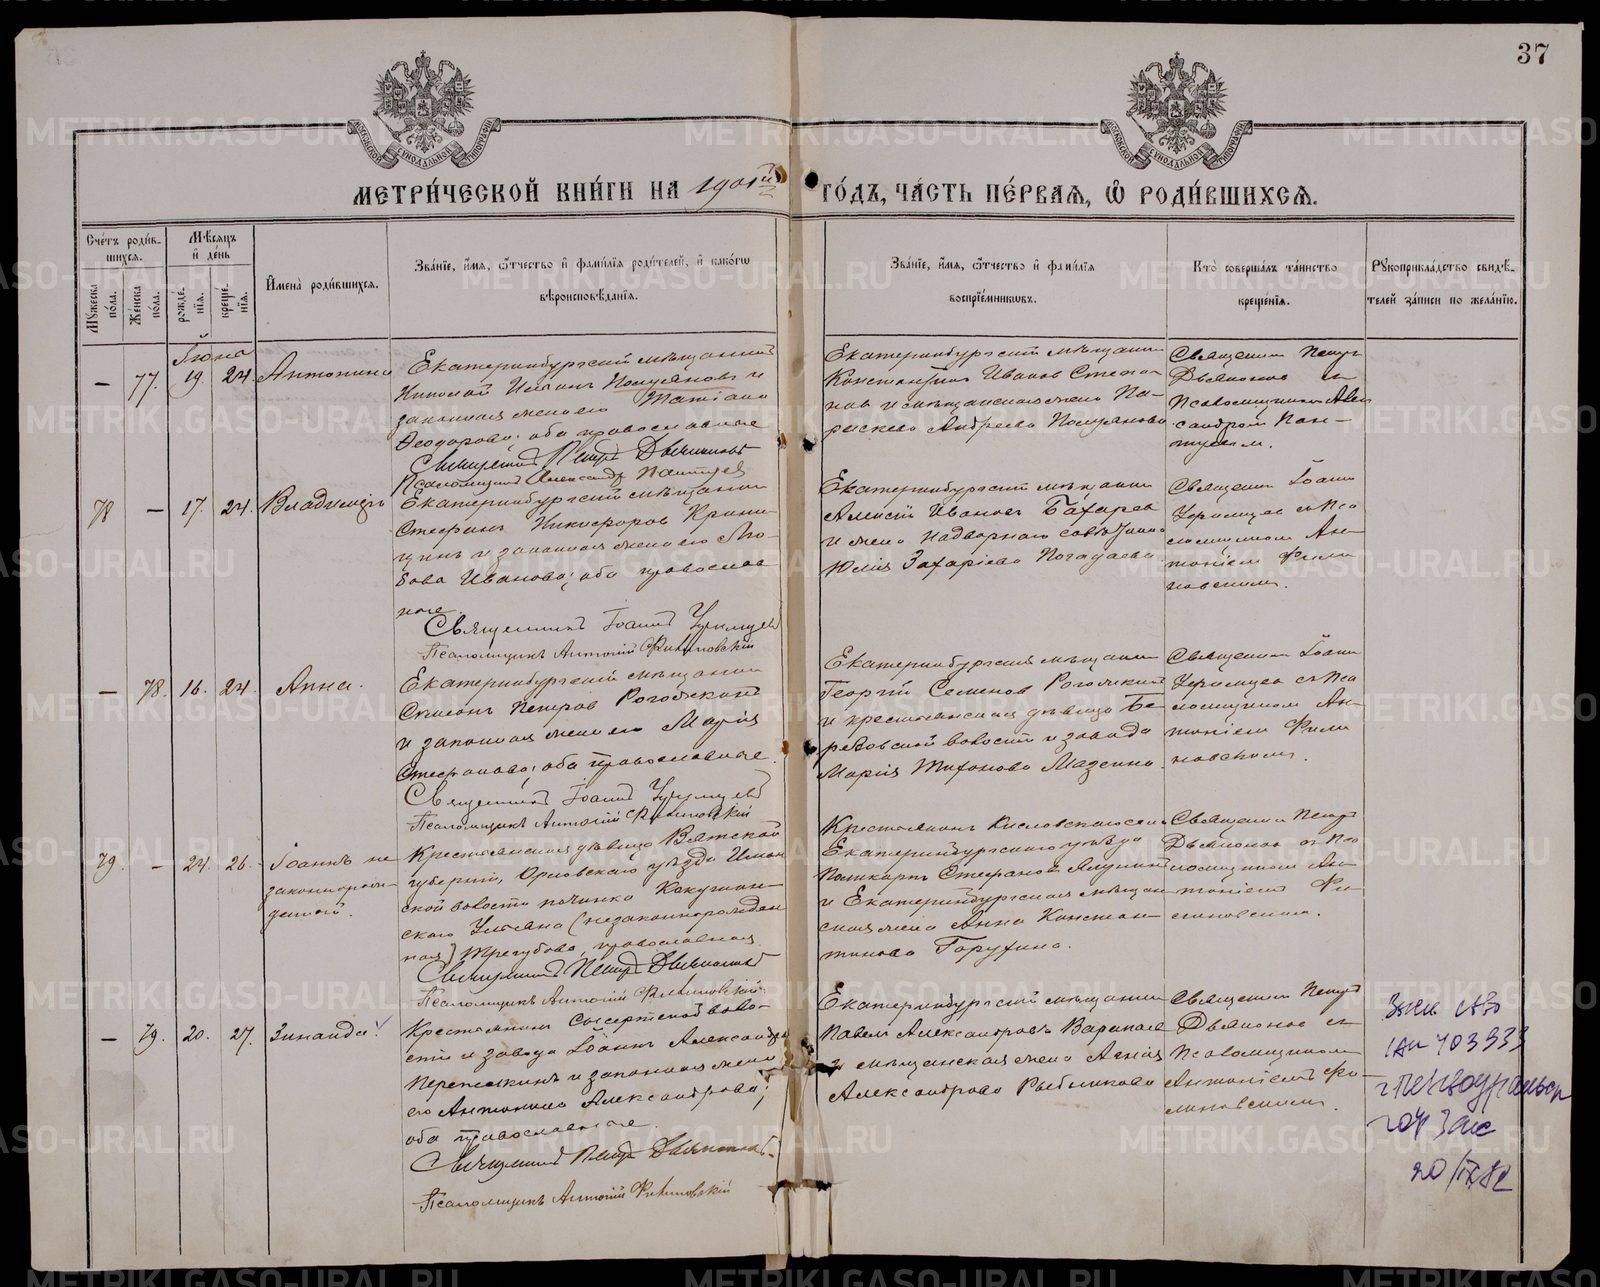 37
МОСКОВСКОЙ СѴНОДАЛЬНОЙ ТИПОГРАФІИ
МОСКОВСКОЙ СѴНОДАЛЬНОЙ ТИПОГРАФІИ
МЕТРИ́ЧЕСКОЙ КНИ́ГИ НА 1901й ГО́ДЪ, ЧА́СТЬ ПЕ́РВАѦ, Ѡ РОДИ́ВШИХСѦ.
Сче́тъ роди́в-
шихсѧ.
Мꙋжеска по́ла.
Же́нска по́ла.
Мѣ́сѧцъ
и де́нь
рожде́нїѧ.
креще́нїѧ.
Имена̀ роди́вшихсѧ.
Зва́нїе, и́мѧ, ѻ́тчество и фами́лїѧ роди́телей, и како́гѡ
вѣроисповѣ́данїѧ.
Зва́нїе, и́мѧ, ѻ́тчество и фами́лїѧ
воспрїе́мникѡвъ.
Кто̀ соверша́лъ та́инство
креще́нїѧ.
Рꙋкоприкла́дство свидѣ́-
телей за́писи по жела́нїю.
Іюня
— 77. 19. 24. Антонина
Екатеринбургскій мѣщанинъ
законная жена его Татіана
Ѳеодорова; оба православные
Священникъ Петръ Дьяконовъ
Псаломщикъ Александръ
Екатеринбургскій мѣщанинъ
Константинъ Ивановъ Степа-
новъ и мѣщанская жена Па-
раскева Андреева
Священникъ Петръ
Дьяконовъ съ
псаломщикомъ Алек-
сандромъ
78 — 17. 24. Владиміръ
Екатеринбургскій мѣщанинъ
Стефанъ Никифоровъ
и законная жена его Лю-
бовь Иванова; оба православ
ные.
Священникъ Іоаннъ
Псаломщикъ Антоній Филиновскій
Екатеринбургскій мѣщанинъ
Алексій Ивановъ Бахарев
и жена Надворнаго совѣтника
Юлія Захаріева Погадаева
Священникъ Іоаннъ
съ Пса
ломщикомъ Ан-
тоніемъ Фили
новскимъ.
— 78. 16. 24. Анна.
Екатеринбургскій мѣщанинъ
Симеонъ Петровъ Рогожскій
и законная жена его Марія
Стефанова; оба православные.
Священникъ Іоаннъ
Псаломщикъ Антоній Филиновскій
Екатеринбургскій мѣщанинъ
Георгій Семеновъ Рогожскій
и крестьянская дѣвица Бе-
резовской волости и завода
Марія Тихонова
Священникъ Іоаннъ
съ Пса
ломщикомъ Ан-
тоніемъ Фили
новскимъ.
79. — 24. 26. Іоаннъ не
законнорож-
денный.
Крестьянская дѣвица Вятской
губерніи, Орловскаго уѣзда
ской волости починка
скаго Ульяна (незаконнорожден
ная) Трегубова, православная.
Священникъ Петръ Дьяконовъ
Псаломщикъ Антоній Филиновскій
Крестьянинъ Кисловскаго села
Екатеринбургскаго уѣзда
Поликарпъ Стефановъ
и Екатеринбургская мѣщан
ская жена Анна Констан-
тинова
Священникъ Петръ
Дьяконовъ съ Пса
ломщикомъ Ан-
тоніемъ Фи-
линовскимъ.
— 79. 20. 27. Зинаида
Крестьянинъ Сысертской воло-
сти и завода Іоаннъ Александровъ
Перепелкинъ и законная жена
его Антонина Александрова;
оба православные.
Священникъ Петръ Дьяконовъ
Псаломщикъ Антоній Филиновскій
Екатеринбургскій мѣщанинъ
Павелъ Александровъ
и мѣщанская жена Агнія
Александрова Рыбникова
Священникъ Петръ
Дьяконовъ съ
Псаломщикомъ
Антоніемъ Фи-
линовскимъ.
г Первоуральск
гор Загс
20/IX 82